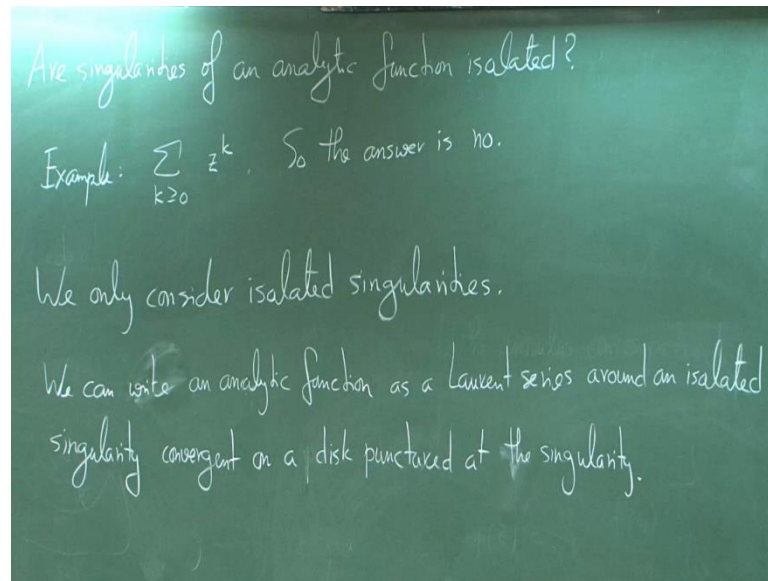 Are singularities of an analytic function isalated?
Example: ∑ z^k. So the answer is no.
k≥0
We only consider isalated singularities.
We can write an analytic function as a Laurent series around an isalated
singularity convergent on a disk punctured at the singularity.